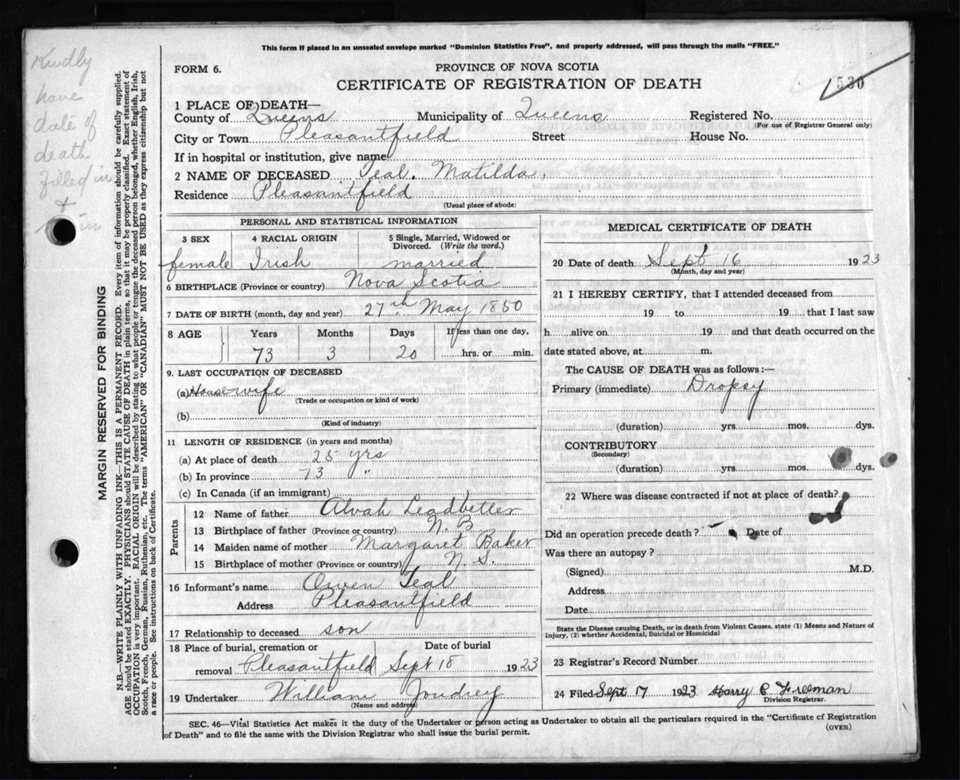 This form if placed in an unsealed envelope marked "Dominion Statistics Free", and properly addressed, will pass through the mails "FREE."
FORM 6.
PROVINCE OF NOVA SCOTIA
CERTIFICATE OF REGISTRATION OF DEATH
530
Kindly
have
date of
death
filled in
MARGIN RESERVED FOR BINDING
N.B.—WRITE PLAINLY WITH UNFADING INK—THIS IS A PERMANENT RECORD. Every item of information should be carefully supplied.
AGE should be stated EXACTLY. PHYSICIANS should STATE CAUSE OF DEATH in plain terms, so that it may be properly classified. Exact statement of
OCCUPATION is very important. RACIAL ORIGIN will be described by stating to what people or tongue the deceased person belonged, whether English, Irish,
Scotch, French, German, Russian, Ruthenian, etc. The terms "AMERICAN" or "CANADIAN" MUST NOT BE USED as they express citizenship but not
a race or people. See instructions on back of Certificate.
1 PLACE OF DEATH—
County of Queens Municipality of Queens Registered No.
(For use of Registrar General only)
City or Town Pleasantfield Street House No.
If in hospital or institution, give name
2 NAME OF DECEASED Teal. Matilda,
Residence Pleasantfield
(Usual place of abode)
PERSONAL AND STATISTICAL INFORMATION
3 SEX 4 RACIAL ORIGIN 5 Single, Married, Widowed or Divorced. (Write the word.)
female Irish married
6 BIRTHPLACE (Province or country) Nova Scotia
7 DATE OF BIRTH (month, day and year) 27th May 1850
8 AGE Years Months Days If less than one day,
73 3 20 hrs. or min.
9. LAST OCCUPATION OF DECEASED
(a) Housewife
(Trade or occupation or kind of work)
(b)
(Kind of industry)
11 LENGTH OF RESIDENCE (in years and months)
(a) At place of death 25 yrs
(b) In province 73 "
(c) In Canada (if an immigrant)
Parents
12 Name of father Alvah Leadbetter
13 Birthplace of father (Province or country) N. B
14 Maiden name of mother Margaret Baker
15 Birthplace of mother (Province or country) N. S.
16 Informant's name Owen Teal
Address Pleasantfield
17 Relationship to deceased son
18 Place of burial, cremation or removal Date of burial
Pleasantfield Sept 18 1923
19 Undertaker William Joudrey
(Name and address)
MEDICAL CERTIFICATE OF DEATH
20 Date of death Sept 16 1923
(Month, day and year)
21 I HEREBY CERTIFY, that I attended deceased from
19 to 19 that I last saw
h alive on 19 and that death occurred on the
date stated above, at m.
The CAUSE OF DEATH was as follows:—
Primary (immediate) Dropsy
(duration) yrs mos. dys.
CONTRIBUTORY
(Secondary)
(duration) yrs mos. dys.
22 Where was disease contracted if not at place of death?
Did an operation precede death? Date of
Was there an autopsy?
(Signed) M.D.
Address
Date
State the Disease causing Death, or in death from Violent Causes, state (1) Means and Nature of
Injury, (2) whether Accidental, Suicidal or Homicidal
23 Registrar's Record Number
24 Filed Sept 17 1923 Harry C Freeman
Division Registrar.
SEC. 46—Vital Statistics Act makes it the duty of the Undertaker or person acting as Undertaker to obtain all the particulars required in the "Certificate of Registration
of Death" and to file the same with the Division Registrar who shall issue the burial permit.
(OVER)